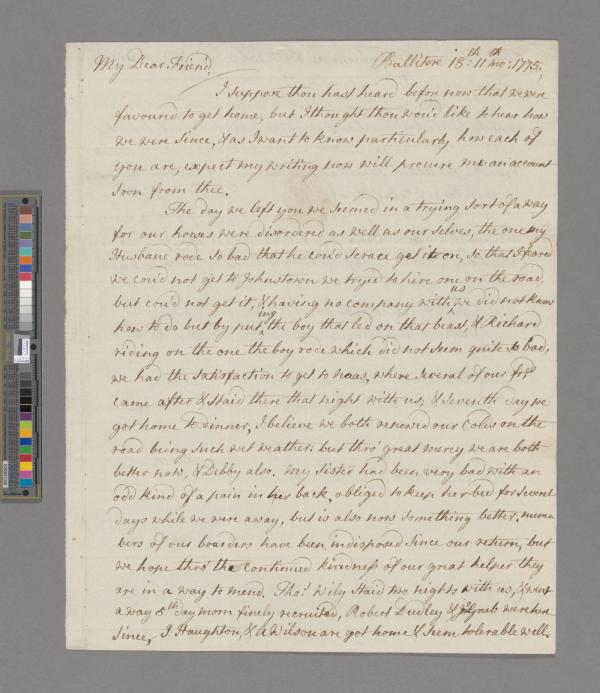 My Dear Friend, Ballitore 18th: 11th mo: 1775,
I suppose thou hast heard before now that we were
favoured to get home, but I thought thou wou'd like to hear how
we were since, & as I want to know particularly how each of
you are, expect my writing now will procure me an account
soon from thee.
The day we left you we seemed in a trying sort of a way
for our horses were disordered as well as ourselves, the one my
Husband rode so bad that he cou'd scrace get it on, so that I feared
we cou'd not get to Johnstown we tryed to hire one on the road
but cou'd not get it, & having no company with us we did not know
how to do but by puting the boy that led on that beast, & Richard
riding on the one the boy rode which did not seem quite so bad,
we had the satisfaction to get to Naas, where several of our frds
came after & staid there that night with us, & seventh day we
got home to dinner, I believe we both renewed our Colds on the
road being such wet weather, but thro' great mercy we are both
better now, & Debby also. My Sister had been very bad with an
odd kind of a pain in her back, obliged to keep her bed for several
days while we were away, but is also now something better. num=
bers of our boarders have been indisposed since our return, but
we hope thro' the continued kindness of our great helper they
are in a way to mend. Thos: Wily staid two nights with us, & went
away 5th day morn finely recruited, Robert Dudley & Grub were here
since, J. Haughton, & A Wilson are got home & seem tolerable well.